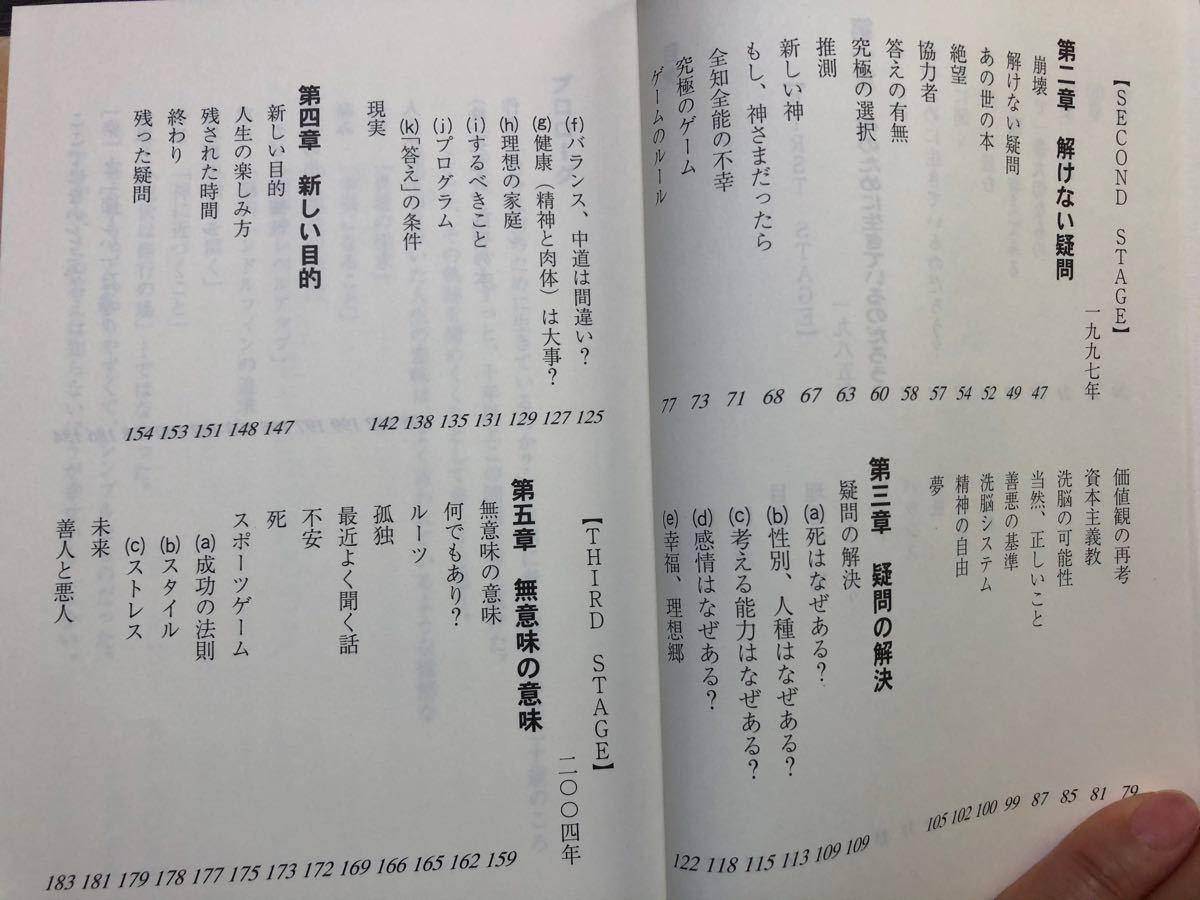 【SECOND STAGE】 一九九七年
第二章 解けない疑問
崩壊 47
解けない疑問 49
あの世の本 52
絶望 54
協力者 57
答えの有無 58
究極の選択 60
推測 63
新しい神 67
もし、神さまだったら 68
全知全能の不幸 71
究極のゲーム 73
ゲームのルール 77
価値観の再考 79
資本主義教 81
洗脳の可能性 85
当然、正しいこと 87
善悪の基準 99
洗脳システム 100
精神の自由 102
夢 105
第三章 疑問の解決
疑問の解決 109
(a)死はなぜある? 109
(b)性別、人種はなぜある? 113
(c)考える能力はなぜある? 115
(d)感情はなぜある? 118
(e)幸福、理想郷 122
(f)バランス、中道は間違い? 125
(g)健康(精神と肉体)は大事? 127
(h)理想の家庭 129
(i)するべきこと 131
(j)プログラム 135
(k)「答え」の条件 138
現実 142
第四章 新しい目的
新しい目的 147
人生の楽しみ方 148
残された時間 151
終わり 153
残った疑問 154
【THIRD STAGE】 二〇〇四年
第五章 無意味の意味
無意味の意味 159
何でもあり? 162
ルーツ 165
孤独 166
最近よく聞く話 169
不安 172
死 173
スポーツゲーム 175
(a)成功の法則 177
(b)スタイル 178
(c)ストレス 179
未来 181
善人と悪人 183